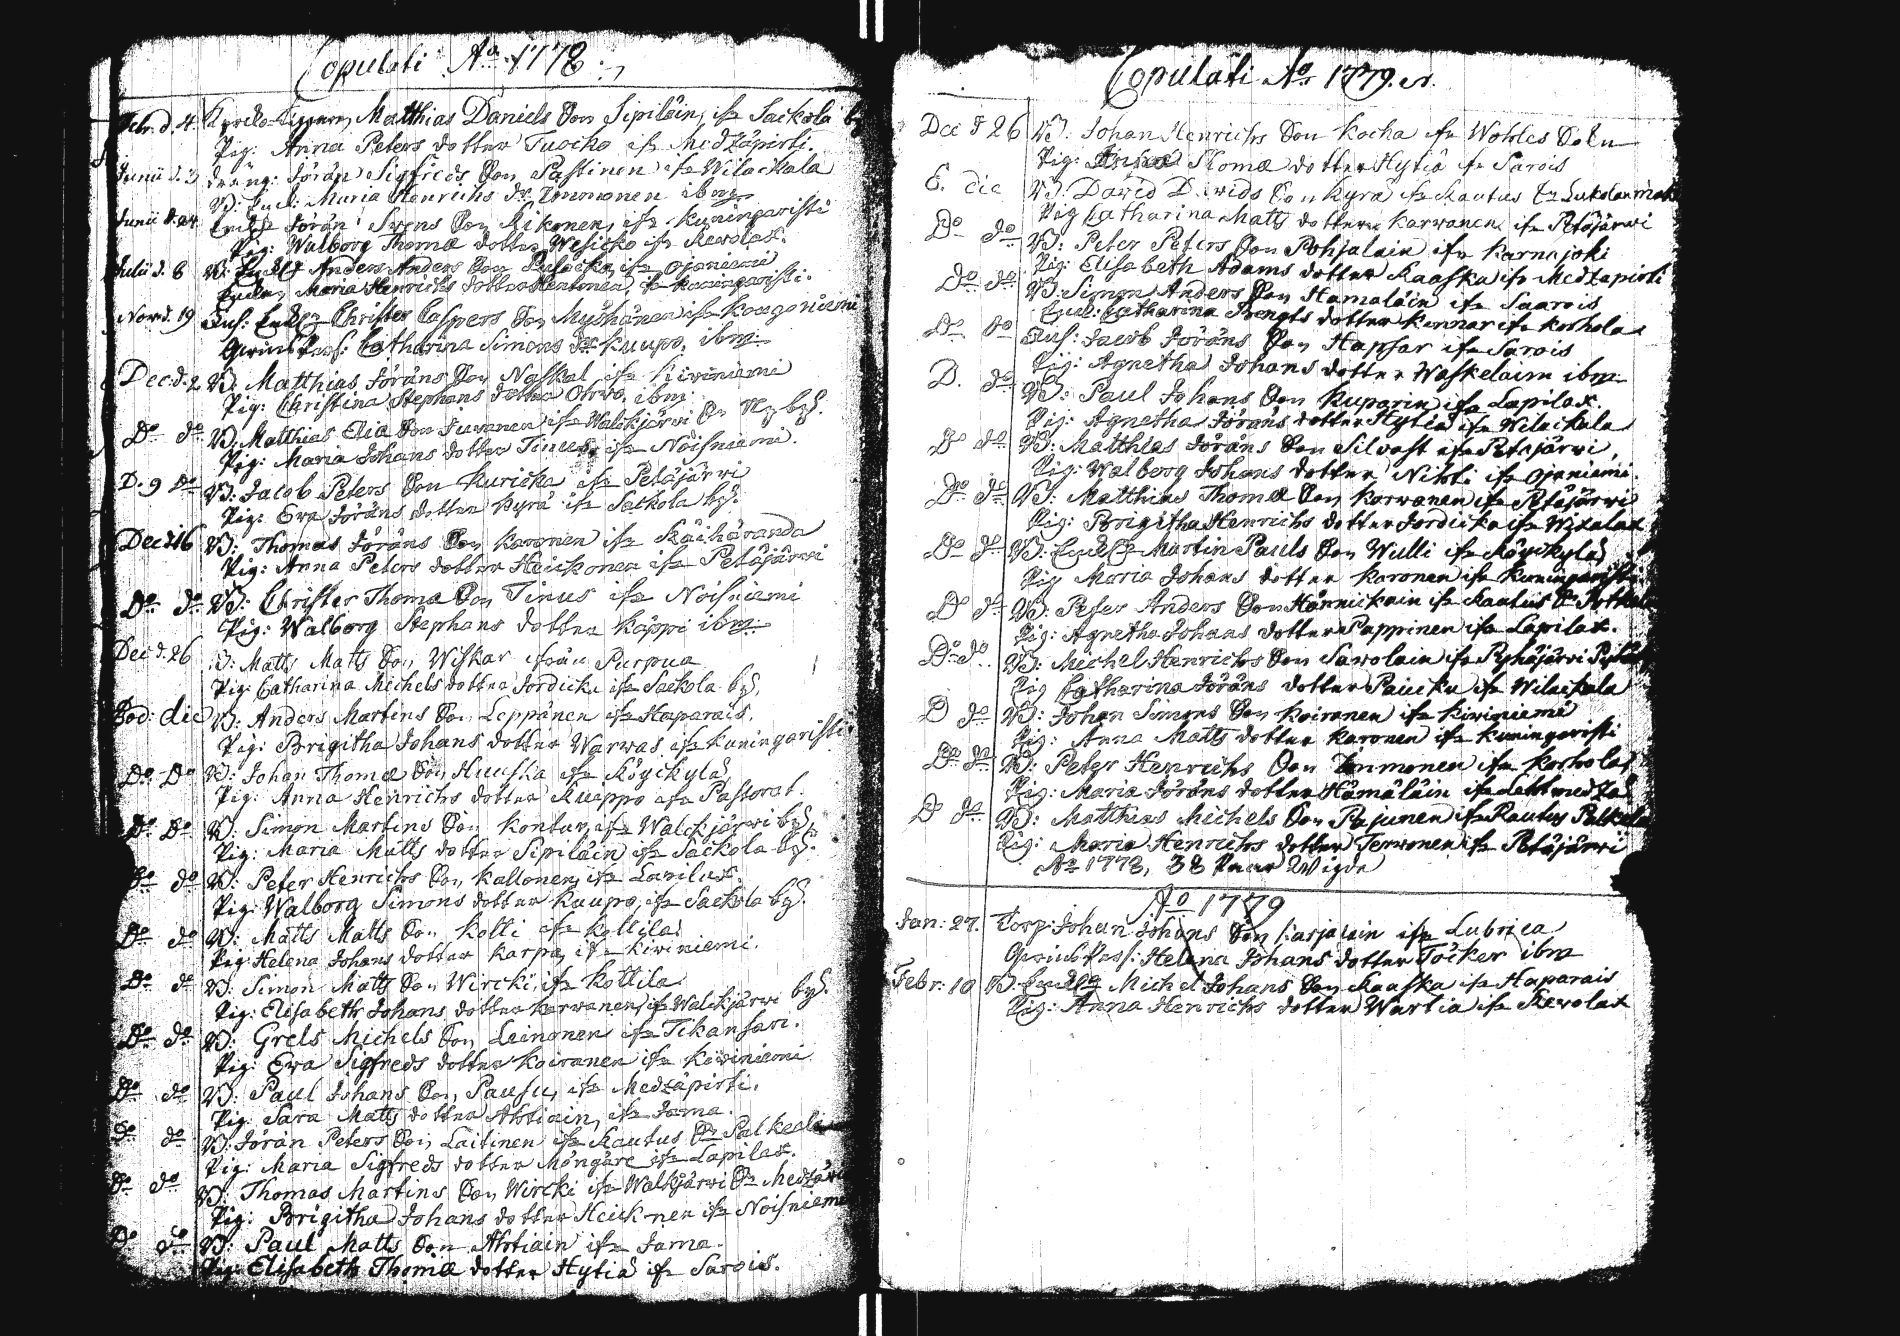 Copulati Aō 1778:
Febr. d. 4. Matthias Daniels Son Sipiläin, ifr Sackola by
Pig: Anna Peters dotter Tuocko ifr Medzäpirti.
Junii d. 3 dräng: Jöran Sigfreds Son Pastinen ifr Wilackala
Maria Henrichs dr Immonen ibm
Junii d. 24 Jöran Svens Son Rikonen, ifr Kuningaristi
Pig: Walborg Thomæ dotter Wesicko ifr Rewolax.
Julii d. 6 Anders Anders Son ifr Ojaniemi
Maria Henrichs dotter ifr Kuningaristi.
Novr d. 19 Inh: Christer Caspers Son Myhönen ifr Kougoniemi
Catharina Simons dr Kuupo, ibm
Dec: d. 2 B: Matthias Jörans Son Naskal ifr Kiviniemi
Pig: Christina Stephans dotter Ohwo, ibm
Do do B: Matthias Eliæ Son Juvanen ifr Walckjärvi byS.
Pig: Maria Johans dotter Tinus, ifr Noisniemi.
D. 9 Do B: Jacob Peters Son Kuricka ifr Petäjärwi
Pig: Ewa Jörans dotter Kyrä ifr Sackola byS.
Dec d 16 B: Thomas Jörans Son Karonen ifr Räihäranda
Pig: Anna Peters dotter Heickonen ifr Petäjärwi
Do do B: Christer Thomæ Son Tinus ifr Noisniemi
Pig: Walborg Stephans dotter Käppi ibm
Dec d. 26 B: Matts Matts Son Wiskar ifrån Purpua
Pig: Catharina Michels dotter Jordicka ifr Sackola byS.
Eod: die B: Anders Martins Son Leppänen ifr Haparais.
Pig: Brigitha Johans dotter Warwas ifr Kuningaristi
Do Do B: Johan Thomæ Son Huuska ifr Röyckylä
Pig: Anna Henrichs dotter Kuappo ifr Pastorat.
Do Do B: Simon Martins Son Kontur, ifr Walckjärwi byS.
Pig: Maria Matts dotter Sipiläin ifr Sackola byS.
Do do B: Peter Henrichs Son Kallonen, ifr Lapilax.
Pig: Walborg Simons dotter Kuupo, ifr Sackola byS.
Do do B: Matts Matts Son Kotti ifr Kottila
Pig: Helena Johans dotter Karpa, ifr Kiviniemi.
Do do B: Simon Matts Son Wircki, ifr Kottila
Pig: Elisabeth Johans dotter Karwanen, ifr Walckjärwi byS.
Do do B: Grels Michels Son Leinonen ifr Tikansari.
Pig: Ewa Sigfreds dotter Koiranen ifr Kiviniemi
Do do B: Paul Johans Son Pausu, ifr Medzäpirti.
Pig: Sara Matts dotter Ahtiain, ifr Jama.
Do do B: Jöran Peters Son Laitinen ifr Rautus Sn Palkeala
Pig: Maria Sigfreds dotter Möngäre ifr Lapilax.
Do do B: Thomas Martins Son Wircki ifr Walkjärwi
Pig: Brigitha Johans dotter Heickonen ifr Noisniemi
Do do B: Paul Matts Son Ahtiain ifr Jama.
Pig: Elisabeth Thomæ dotter Hytiä ifr Sarois.
Copulati Aō 1779.
Dec d 26 B: Johan Henrichs Son Kocka
Pig: Thomæ dotter Hytiä ifr Sarois
E. die B: David Davids Son Kyrä ifr Rautus
Pig Catharina Matts dotter Karwanen ifr Petäjärwi
Do do B: Peter Peters Son Pohjalain ifr Karnajoki
Pig: Elisabeth Adams dotter Kaaska ifr Medzäpirti
Do do B: Simon Anders Son Hämäläin ifr Saarois
Catharina Bengts dotter Kinnar ifr Korhola
Do do Inh: Jacob Jörans Son Hapsar ifr Sarois
Pig: Agnetha Johans dotter Waskelain ibm
D. do B: Paul Johans Son Kuparin ifr Lapilax.
Pig: Agnetha Jörans dotter Hytiä ifr Wilackala
Do do B: Matthias Jörans Son Silvast ifr Petäjärwi
Pig: Walborg Johans dotter Nikti ifr Ojaniemi.
Do do B: Matthias Thomæ Son Karwanen ifr Petäjärwi
Pig: Brigitha Henrichs dotter Jordicka ifr
Do do B: Martin Pauls Son Wulli ifr Röyckylä
Pig Maria Johans dotter Karonen ifr Kuningaristi
Do do B: Peter Anders Son Hännickain ifr Rautus
Pig: Agnetha Johans dotter Pappinen ifr Lapilax.
Do do B: Michel Henrichs Son Sawolain ifr Pyhäjärwi
Pig Catharina Jörans dotter Paucku ifr Wilackala
D do B: Johan Simons Son Koiranen ifr Kiviniemi
Pig: Anna Matts dotter Karonen ifr Kuningaristi
Do do B: Peter Henrichs Son Immonen ifr Korhola
Pig: Maria Jörans dotter Hämäläin ifr
Do do B: Matthias Michels Son Pajunen ifr Rautus Palkeala
Pig: Maria Henrichs dotter Terwonen ifr Petäjärwi
Aō 1778, 38 Paar Wigde
Aō 1779
Jan: 27. Torp: Johan Johans Son Karjalain ifr Lubrica
Helena Johans dotter Töcker ibm
Febr: 10 B: Michel Johans Son Kaaska ifr Haparais
Pig: Anna Henrichs dotter Wartia ifr Rewolax